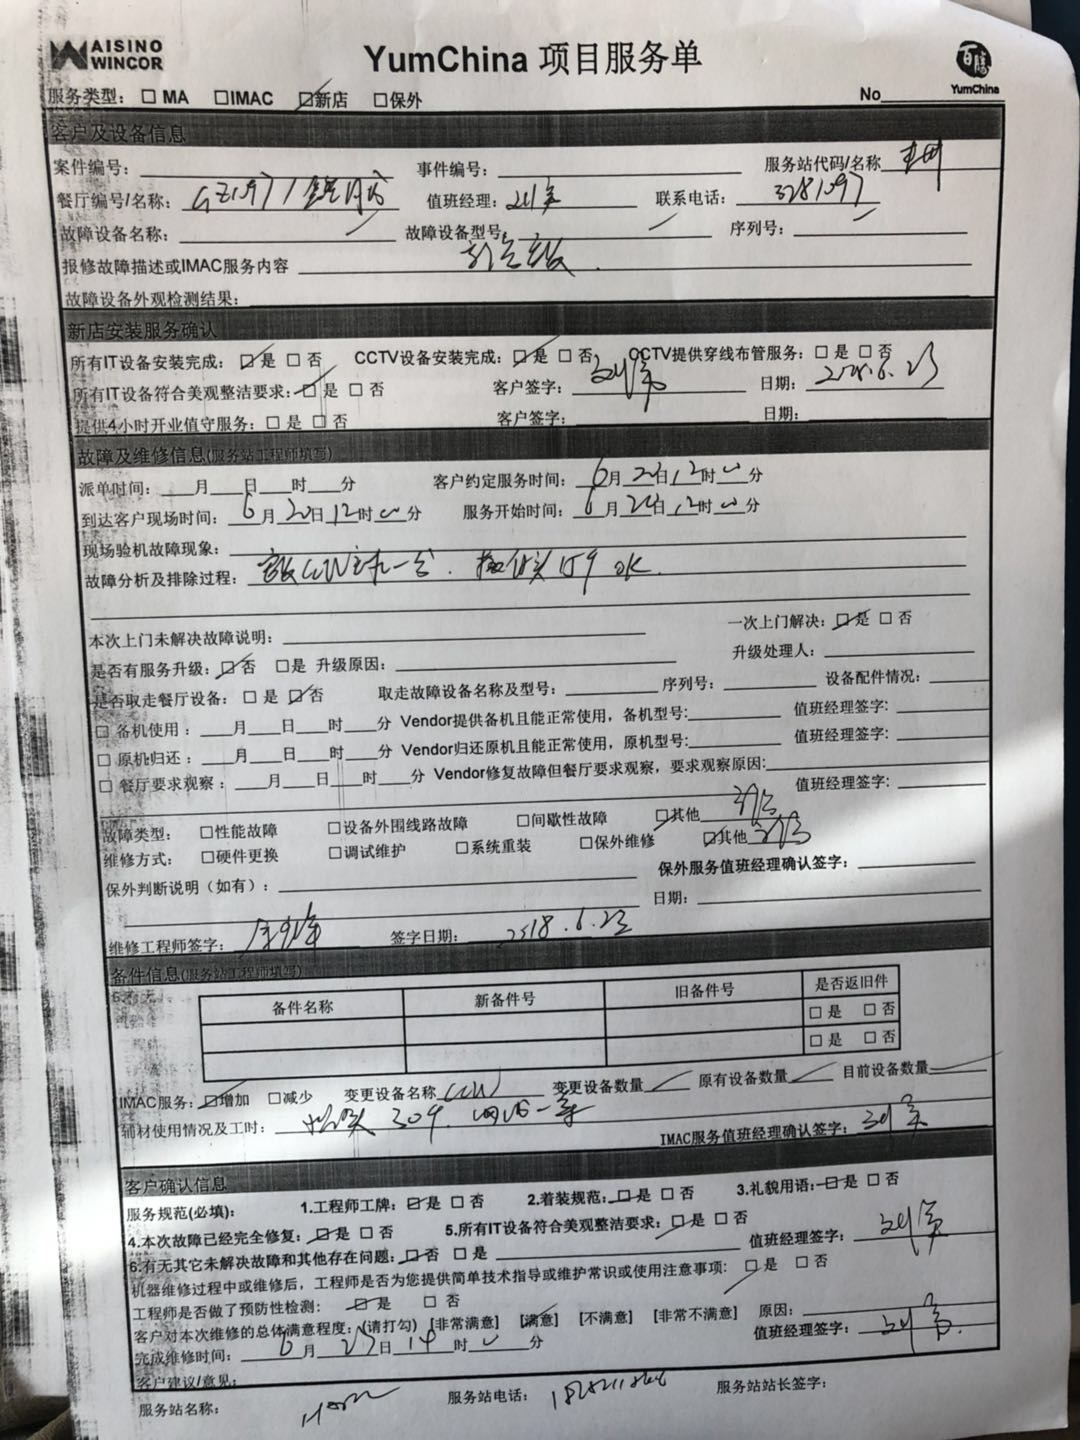 AISINO
WINCOR
YumChina 项目服务单
百勝
YumChina
服务类型： □ MA □IMAC □新店 □保外 No
客户及设备信息
案件编号： 事件编号： 服务站代码/名称
餐厅编号/名称： 值班经理： 联系电话： 3281097
故障设备名称： 故障设备型号： 序列号：
报修故障描述或IMAC服务内容
故障设备外观检测结果：
新店安装服务确认
所有IT设备安装完成： □ 是 □ 否 CCTV设备安装完成： □ 是 □ 否 CCTV提供穿线布管服务： □ 是 □ 否
所有IT设备符合美观整洁要求： □ 是 □ 否 客户签字： 日期：
提供4小时开业值守服务： □ 是 □ 否 客户签字： 日期：
故障及维修信息(服务站工程师填写)
派单时间： 月 日 时 分 客户约定服务时间： 6月 日12时 分
到达客户现场时间： 6月20日12时 分 服务开始时间： 6月 日12时 分
现场验机故障现象：
故障分析及排除过程：
本次上门未解决故障说明： 一次上门解决： □ 是 □ 否
是否有服务升级： □ 否 □是 升级原因： 升级处理人：
是否取走餐厅设备： □ 是 □ 否 取走故障设备名称及型号： 序列号： 设备配件情况：
□ 备机使用： 月 日 时 分 Vendor提供备机且能正常使用，备机型号： 值班经理签字：
□ 原机归还： 月 日 时 分 Vendor归还原机且能正常使用，原机型号： 值班经理签字：
□ 餐厅要求观察： 月 日 时 分 Vendor修复故障但餐厅要求观察，要求观察原因： 值班经理签字：
故障类型： □性能故障 □设备外围线路故障 □间歇性故障 □其他
维修方式： □硬件更换 □调试维护 □系统重装 □保外维修 □其他
保外判断说明（如有）： 保外服务值班经理确认签字：
日期：
维修工程师签字： 签字日期： 2018.6.23
备件信息(服务站工程师填写)
备件名称 新备件号 旧备件号 是否返旧件
□ 是 □ 否
□ 是 □ 否
IMAC服务： □增加 □减少 变更设备名称 变更设备数量 原有设备数量 目前设备数量
辅材使用情况及工时： IMAC服务值班经理确认签字：
客户确认信息
服务规范(必填)： 1.工程师工牌： □ 是 □ 否 2.着装规范： □ 是 □ 否 3.礼貌用语： □ 是 □ 否
4.本次故障已经完全修复： □ 是 □ 否 5.所有IT设备符合美观整洁要求： □ 是 □ 否
6.有无其它未解决故障和其他存在问题： □ 否 □ 是 值班经理签字：
机器维修过程中或维修后，工程师是否为您提供简单技术指导或维护常识或使用注意事项： □ 是 □ 否
工程师是否做了预防性检测： □ 是 □ 否
客户对本次维修的总体满意程度：(请打勾) [非常满意] [满意] [不满意] [非常不满意] 原因：
完成维修时间： 6月23日14时 分 值班经理签字：
客户建议/意见：
服务站名称： 服务站电话： 服务站站长签字：